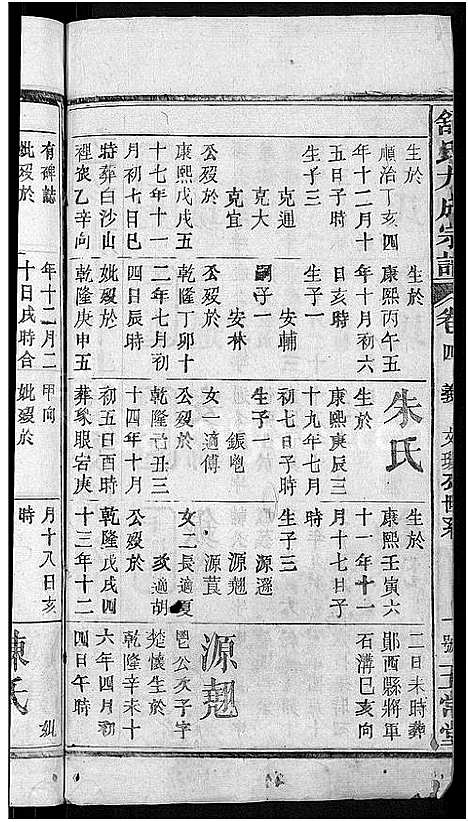 舒氏九成宗譜
卷四
生於
順治丁亥四
年十二月十
五日子時
生子三
克通
克大
克宜
公歿於
康熙戊戌五
十七年十一
月初七日巳
時葬白沙山
裡衮乙辛向
有碑誌
妣歿於
生於
康熙丙午五
年十月初六
日亥時
安輔
嗣子一
安林
公歿於
乾隆丁卯十
二年七月初
四日辰時
妣歿於
乾隆庚申五
年十二月二
十日戌時合
朱氏
生於
康熙庚辰三
十九年七月
初七日子時
生子一
鋠
女一適傅
公歿於
乾隆己丑三
十四年十月
初五日酉時
葬象眼宕庚
甲向
妣歿於
生於
康熙壬寅六
十一年十一
月十七日子
時
生子三
源遜
源翹
源莨
女二長適夏
亥適胡
公歿於
乾隆戊戌四
十三年十二
月十八日亥
時
二日未時葬
鄖西縣將軍
石溝巳亥向
源翹
邑公次子字
楚懷生於
乾隆辛未十
六年四月初
四日午時
陳氏